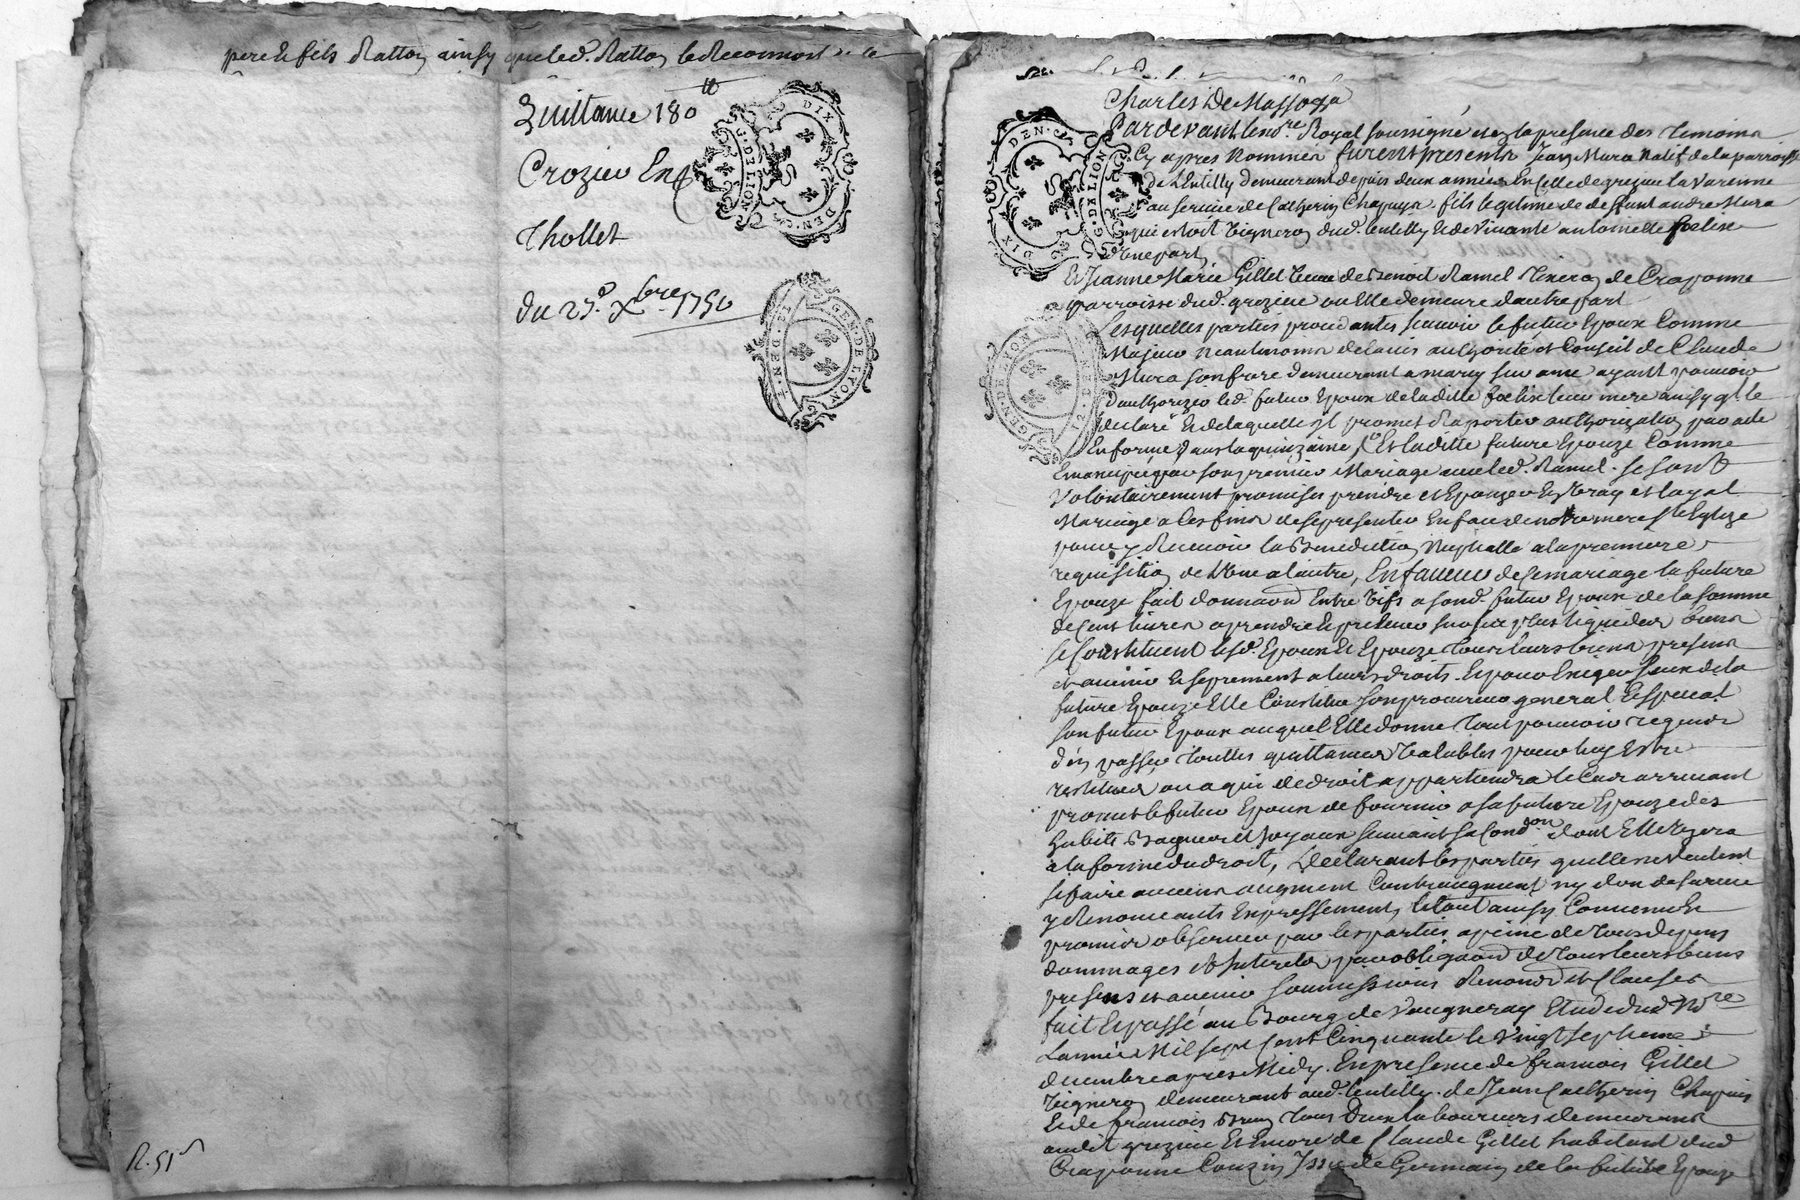 pere et fils Ratton ainsy que led. Ratton le Reconnoit de ce
Quittance 180 tt
Crozier Eng
Thollet
du 27e Xbre 1750
DIX DEN. G. DE LION
GEN. DE LYON 2 DEN.
R. 51 s
Charles De Massoza
Pardevant le nore Royal soussigné et en la presence des temoins
Cy apres nommés furent presents Jean Mura natif de la parroisse
de Lentilly demeurant depuis deux années en celle de grezieu la varenne
au service de Catherin Chapuys fils legitime de deffunt andré Mura
qui estoit vigneron dud. lentilly et de vivante antoinette foelix
d'une part
Et Jeanne Marie Gillet veuve de Benoit Ramel de Craponne
parroisse dud. grezieu ou elle demeure d'autre part
Lesquelles parties procedantes scavoir le futur Epoux Comme
Majeur neantmoins de lavis authorité et Conseil de Claude
Mura son frere demeurant a marcy sur anse ayant pouvoir
d'authorizer led. futur Epoux de laditte foelix leur mere ainsy qle le
declare Et de laquelle il promet raporter authorization par acte
En forme dans la quinzaine, Et laditte future Epouze Comme
Emancipée par son premier Mariage avec led. Ramel. se sont
volontairement promises prendre et Epouzer En vray et loyal
Mariage a ces fins de se presenter En face de notre mere Ste Eglize
pour y Recevoir la Benediction Nuptialle a la premiere
requisition de L'une a l'autre, En faveur de ce mariage la future
Epouze fait donnaon Entre vifs a sond. futur Epoux de la somme
de Cent livres a prendre et prelever sur ses plus liquides biens
se Constituent lesd. Epoux et Epouze tous leurs biens presens
et avenir Et seprement a leurs droits. Et pour Exiger Ceux de la
future Epouze Elle Constitue son procureur general et special
son futur Epoux auquel Elle donne tout pouvoir requis
d'en passer touttes quittances valables pour luy Estre
restitués ou a qui de droit appartiendra le Cas arrivant
promet le futur Epoux de fournir a sa future Epouze des
habits Bagues et Joyaux suivant sa Condon dont Elle
a la forme du droit, Declarant les parties quelles ne veulent
se faire aucun augment Contreaugment ny don de survie
y Renonceants Expressement, le tout ainsy Convenu Et
promis observer par les parties a peine de tous depens
dommages et Interets par obligaon de tous leurs biens
presens et avenir soumissions Renonon et Clauses
fait Et passé au Bourg de Vaugneray Etude dud Nore
L'année Mil sept Cent Cinquante le vingt septieme
decembre apres Midy. En presence de francois Gillet
vigneron demeurant aud. lentilly. de Jean Catherin Chapuis
Et de francois Brun tous Deux laboureurs demeurants
audit grezieu Et Encore de Claude Gillet habitant dud
Craponne Couzin Issu de Germain de la future Epouze